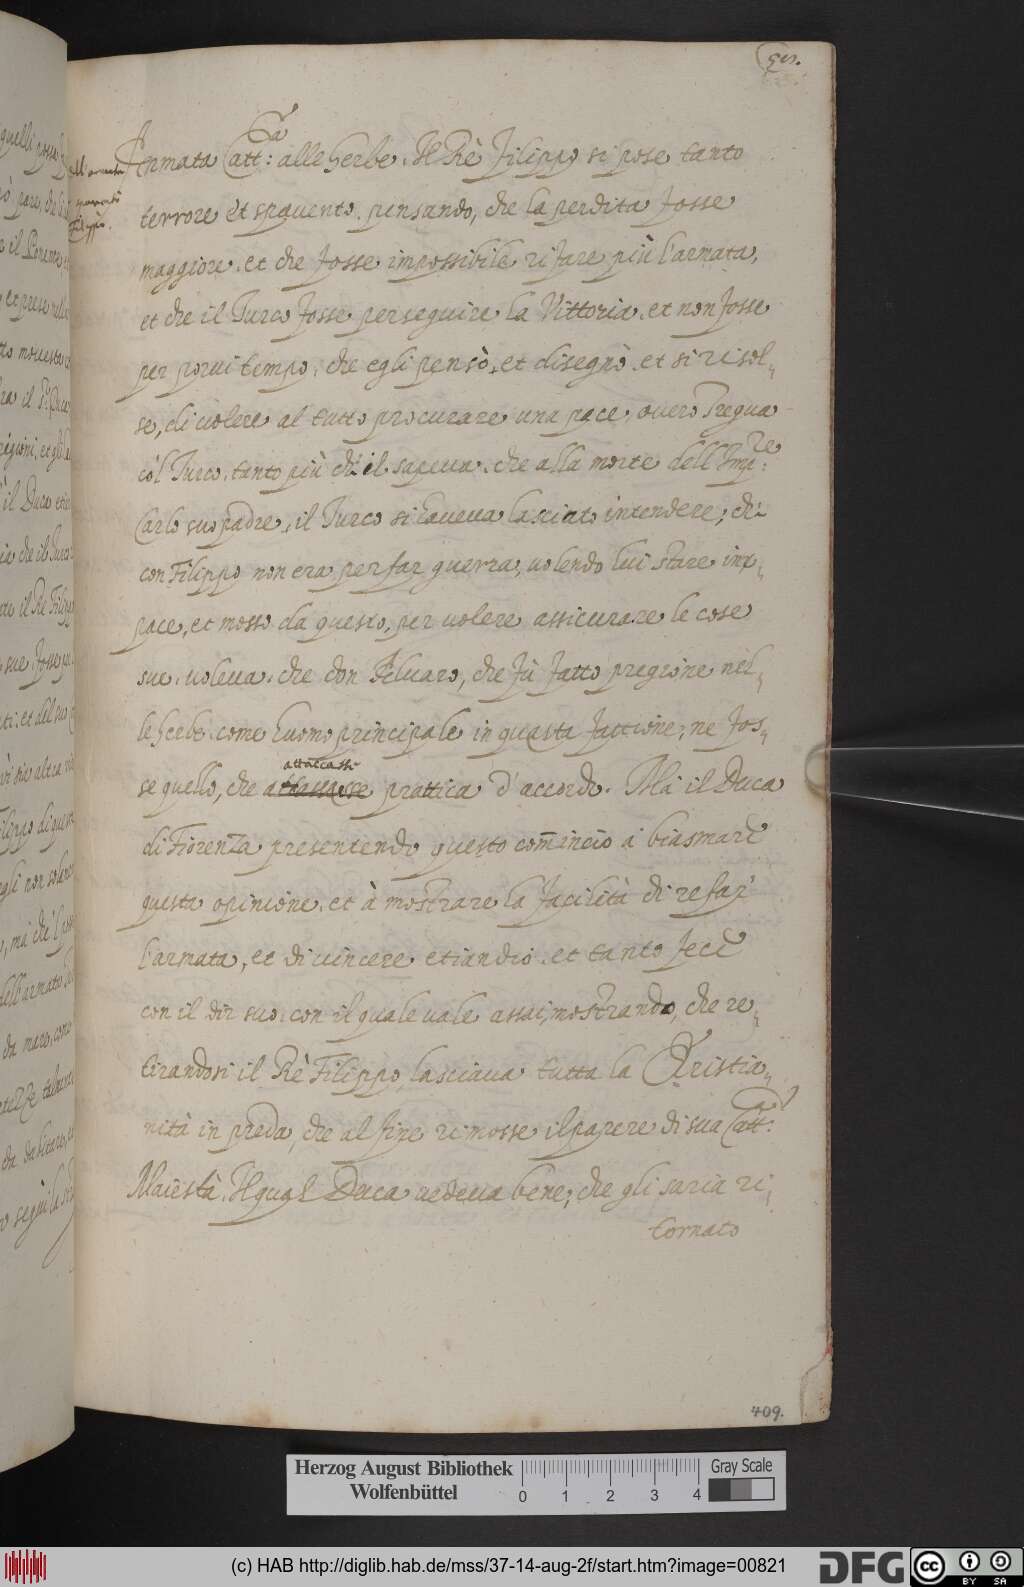 Armata Catt:ca alle Gerbe. Il Rè Filippo si pose tanto
terrore et spauento, pensando, che la perdita fosse
maggiore, et che fosse impossibile rifare più l'armata,
et che il Turco fosse perseguire la Vittoria, et non fosse
per porui tempo, che egli pensò, et disegnò, et si risol-
se, di uolere al tutto procurare una pace, ouero Tregua
còl Turco, tanto più ch' il sapeua, che alla morte dell'Imp:re
Carlo suo padre, il Turco si haueua lasciato intendere, che
con Filippo non era per far guerra, uolendo lui stare in
pace, et mosso da questo, per uolere assicurare le cose
sue, uoleua, che don Aluaro, che fù fatto pregione nel-
le Gerbe, come huomo principale in questa fattione, ne fos-
se quello, che attaccassi prattica d'accordo. Mà il Duca
di Fiorenza presentendo questo com̄inciò à biasmare
questa opinione, et à mostrare la facilità di refar
l'armata, et di uincere etiandio, et tanto fece
con il dir suo, con il quale uale assai, mostrando, che re-
tirandosi il Rè Filippo, lasciaua tutta la Christia-
nità in preda, che al fine rimosse il parere di sua Catt:ca
Maiestà. Il qual Duca uedeua bene, che gli saria ri-
tornato
409.
Herzog August Bibliothek
Wolfenbüttel
0 1 2 3 4
Gray Scale
(c) HAB http://diglib.hab.de/mss/37-14-aug-2f/start.htm?image=00821
DFG
cc BY SA